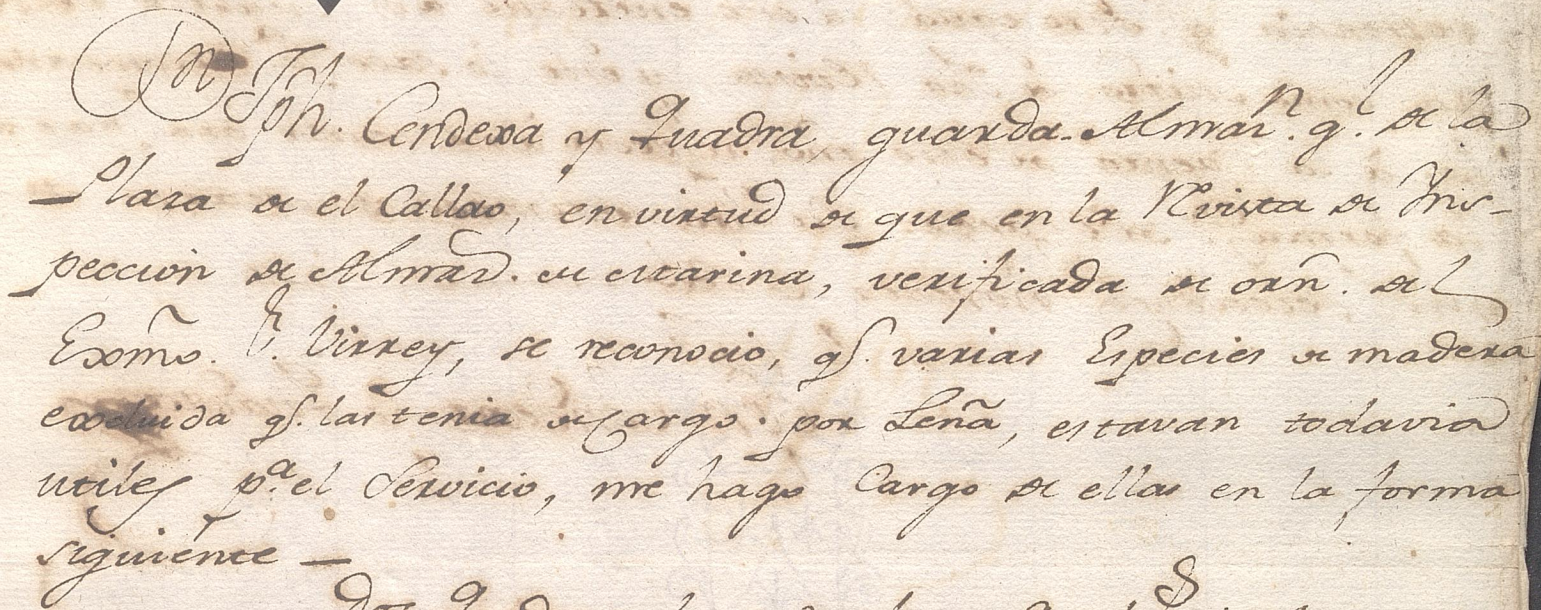 Dn Jph. Cendexa y Quadra, guarda-Almazn. gl. de la
Plaza de el Callao, en virtud de que en la Revista de Ins-
peccion de Almaz. de Marina, verificada de orñ. del
Exomõ. Sr. Virrey, se reconocio, qe. varias Especies de madera
excluida qe. las tenia de Cargo. por Leña, estavan todavia
utiles pa. el Servicio, me hago Cargo de ellas en la forma
siguiente —